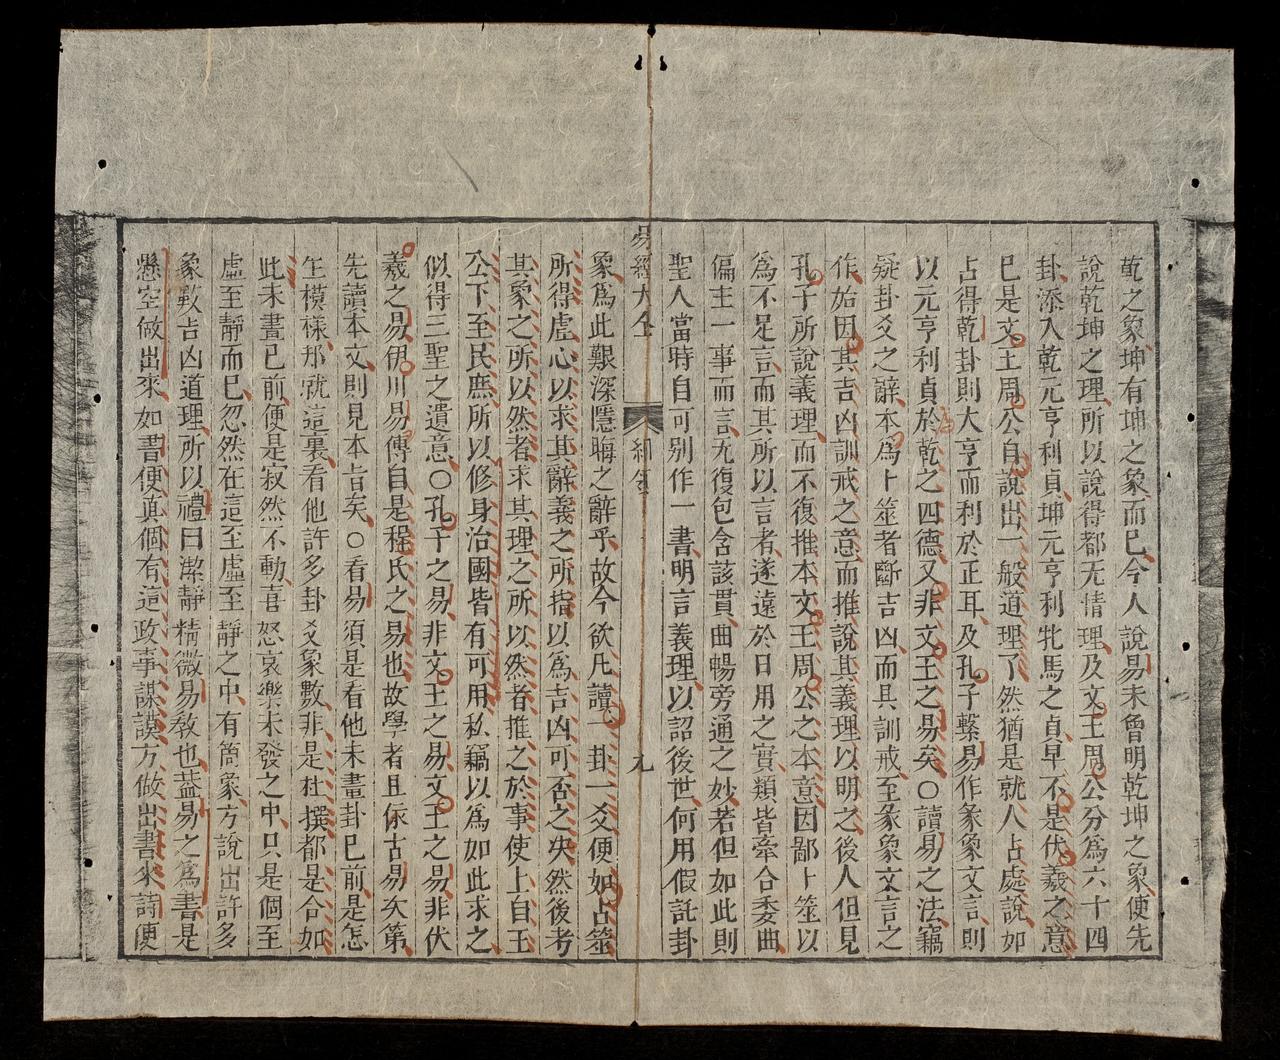 乾之象坤有坤之象而已今人說易未曾明乾坤之象便先
說乾坤之理所以說得都无情理及文王周公分為六十四
卦添入乾元亨利貞坤元亨利牝馬之貞早不是伏羲之意
已是文王周公自說出一般道理了然猶是就人占處說如
占得乾卦則大亨而利於正耳及孔子繫易作彖象文言則
以元亨利貞於乾之四德又非文王之易矣〇讀易之法竊
疑卦爻之辭本為卜筮者斷吉凶而具訓戒至彖象文言之
作始因其吉凶訓戒之意而推說其義理以明之後人但見
孔子所說義理而不復推本文王周公之本意因鄙卜筮以
為不足言而其所以言者遂遠於日用之實類皆牽合委曲
偏主一事而言无復包含該貫曲暢旁通之妙若但如此則
聖人當時自可別作一書明言義理以詔後世何用假託卦
易經大全 綱領 九
象為此艱深隱晦之辭乎故今欲凡讀一卦一爻便如占筮
所得虛心以求其辭義之所指以為吉凶可否之決然後考
其象之所以然者求其理之所以然者推之於事使上自王
公下至民庶所以修身治國皆有可用私竊以為如此求之
似得三聖之遺意〇孔子之易非文王之易文王之易非伏
羲之易伊川易傳自是程氏之易也故學者且依古易次第
先讀本文則見本旨矣〇看易須是看他未畫卦已前是怎
生模樣那就這裏看他許多卦爻象數非是杜撰都是合如
此未畫已前便是寂然不動喜怒哀樂未發之中只是個至
虛至靜而已忽然在這至虛至靜之中有箇象方說出許多
象數吉凶道理所以禮曰潔靜精微易教也蓋易之為書是
懸空做出來如書便真個有這政事謀謨方做出書來詩便